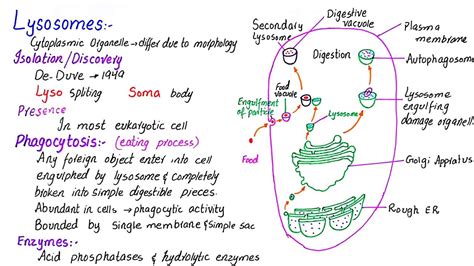 Lysosomes:-
Cytoplasmic Organelle → differ due to morphology
Isolation/Discovery
De-Duve → 1949
Lyso spliting Soma body
Presence
In most eukaryotic cell
Phagocytosis:- (eating process)
Any foreign object enter into cell
engulphed by lysosome & completely
broken into simple digestible pieces.
Abundant in cells → phagocytic activity
Bounded by single membrane & simple sac
Enzymes:-
Acid phosphatases & hydrolytic enzymes
Secondary
Lysosome
Digestive
vacuole
Plasma
membrane
Digestion
Autophagosome
Food
vacuole
Engulfment
of particle
Lysosome
Lysosome
engulfing
damage organell
Food
Golgi Appratus
Rough ER